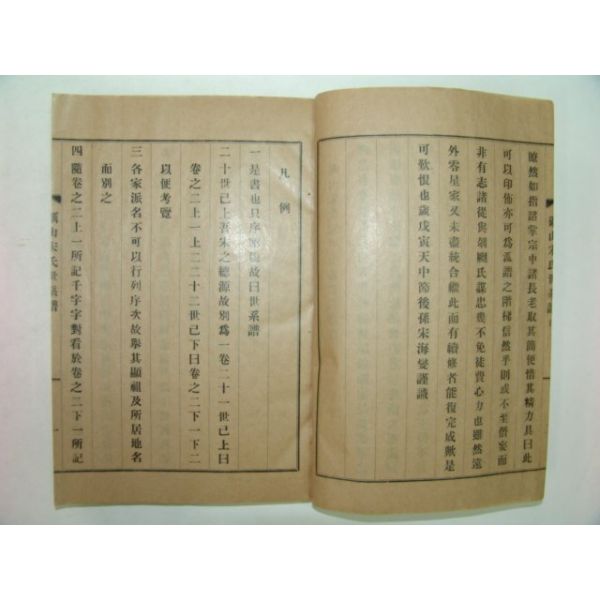 瞭然如指諸掌宗中諸長老取其簡便惜其精力具曰此
可以印佈亦可為派譜之階梯信然乎則或不至僭妄而
非有志諸從與剞劂氏謀忠幾不免徒費心力也雖然遠
外零星家又未盡統合繼此而有續修者能復完成歟是
可歎恨也歲戊寅天中節後孫宋海燮謹識
凡例
一是書也只序昭穆故曰世系譜
二十世已上吾宋之德源故別為一卷二十一世已上曰
卷之二上一上二二十二世已下曰卷之二下一下二
以便考覽
三各家派名不可以行列序次故擧其顯祖及所居地名
而別之
四隨卷之二上一所記千字字對看於卷之二下一所記
山宋氏世系譜